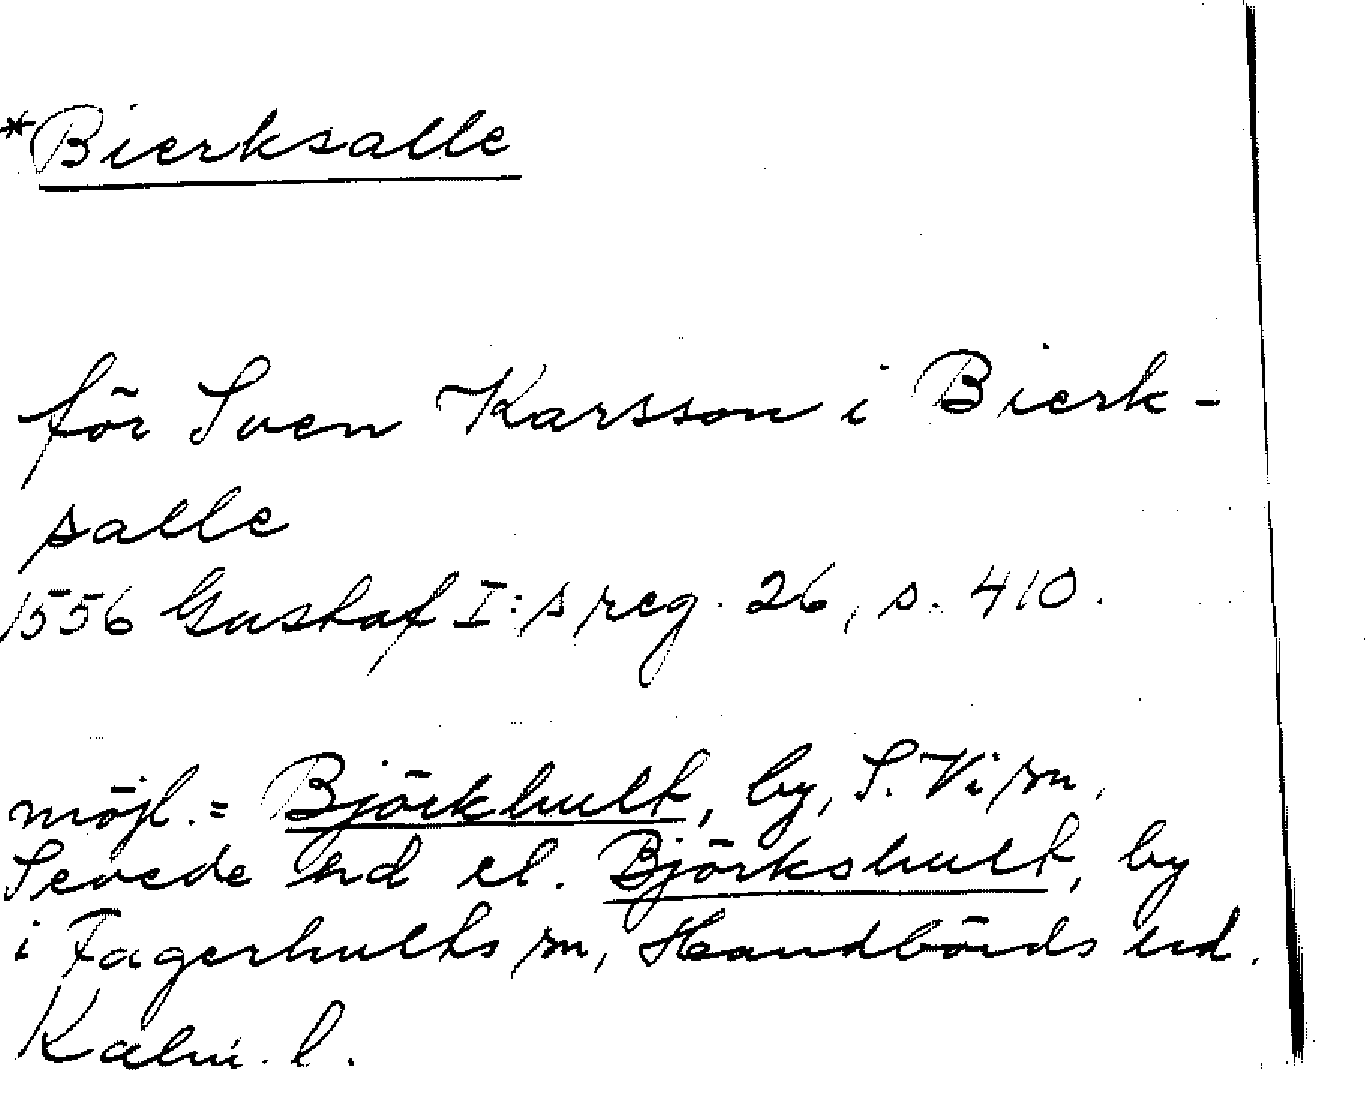 *Bierksalle
för Sven Karsson i Bierk-
salle
1556 Gustaf I:s reg. 26, s. 410.
möjl. = Björkhult, by, S. Vi sn,
Sevede hd el. Björkshult, by
i Fagerhults sn, Handbörds hd.
Kalm. l.